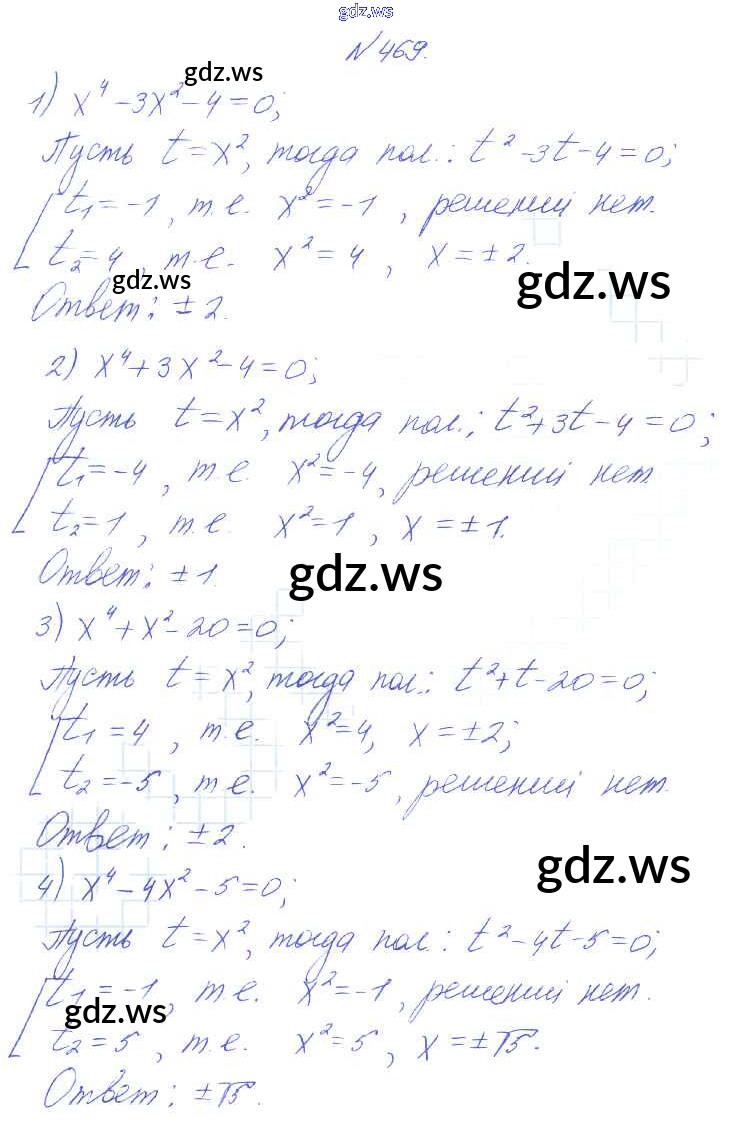 gdz.ws
№469.
gdz.ws
1) x⁴ - 3x² - 4 = 0;
Пусть t = x², тогда пол.: t² - 3t - 4 = 0;
t₁ = -1, т.е. x² = -1, решений нет.
t₂ = 4, т.е. x² = 4, x = ±2.
gdz.ws
gdz.ws
Ответ: ±2.
2) x⁴ + 3x² - 4 = 0;
Пусть t = x², тогда пол.: t² + 3t - 4 = 0;
t₁ = -4, т.е. x² = -4, решений нет
t₂ = 1, т.е. x² = 1, x = ±1.
Ответ: ±1.
gdz.ws
3) x⁴ + x² - 20 = 0;
Пусть t = x², тогда пол.: t² + t - 20 = 0;
t₁ = 4, т.е. x² = 4, x = ±2;
t₂ = -5, т.е. x² = -5, решений нет.
Ответ: ±2.
gdz.ws
4) x⁴ - 4x² - 5 = 0;
Пусть t = x², тогда пол.: t² - 4t - 5 = 0;
t₁ = -1, т.е. x² = -1, решений нет.
gdz.ws
t₂ = 5, т.е. x² = 5, x = ±√5.
Ответ: ±√5.